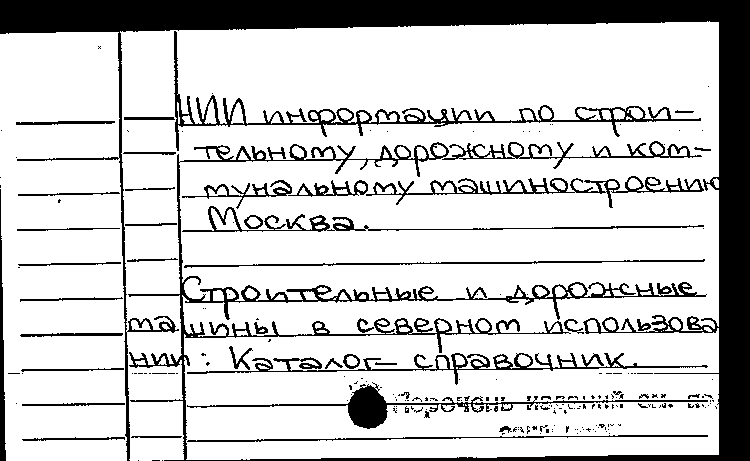 НИИ информации по строи-
тельному, дорожному и ком-
мунальному машиностроению
Москва.
Строительные и дорожные
машины в северном использова
нии: Каталог- справочник.
Перечень изданий см. на